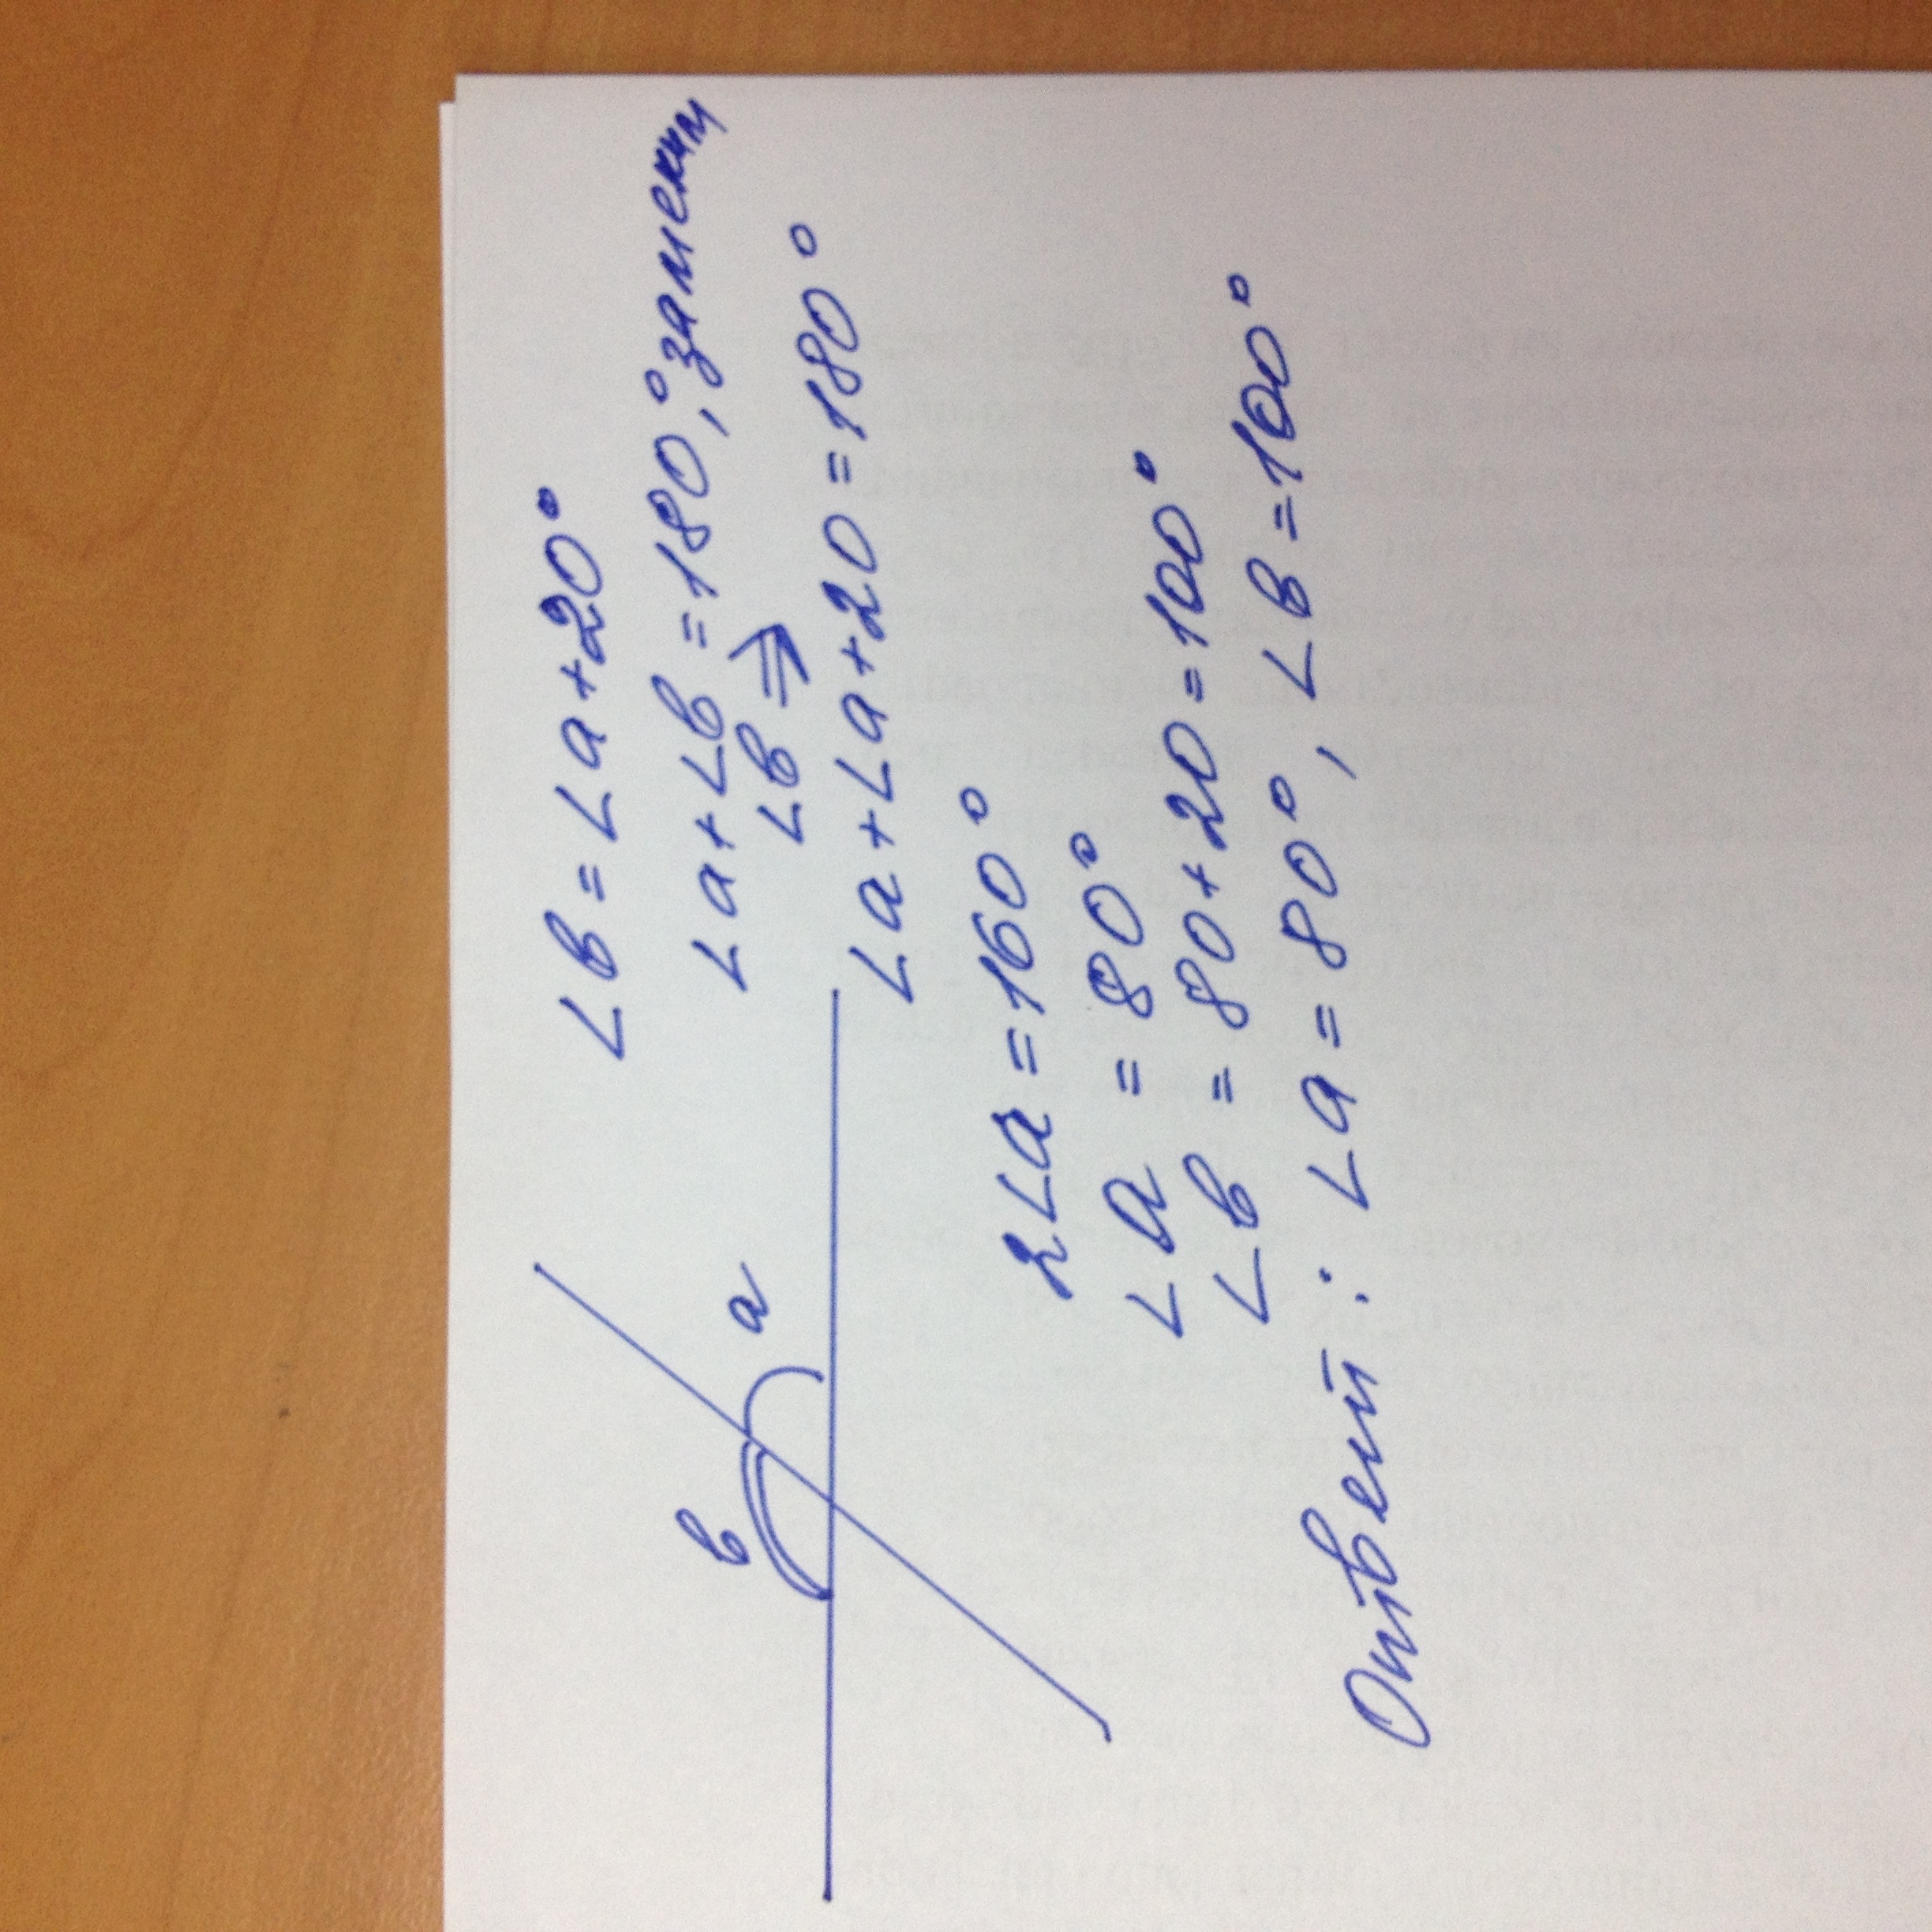 ∠в = ∠а + 20°
∠а + ∠в = 180°, заменим
∠в ⇒
∠а + ∠а + 20 = 180°
в а
2∠а = 160°
∠а = 80°
∠в = 80 + 20 = 100°
Ответ: ∠а = 80°, ∠в = 100°